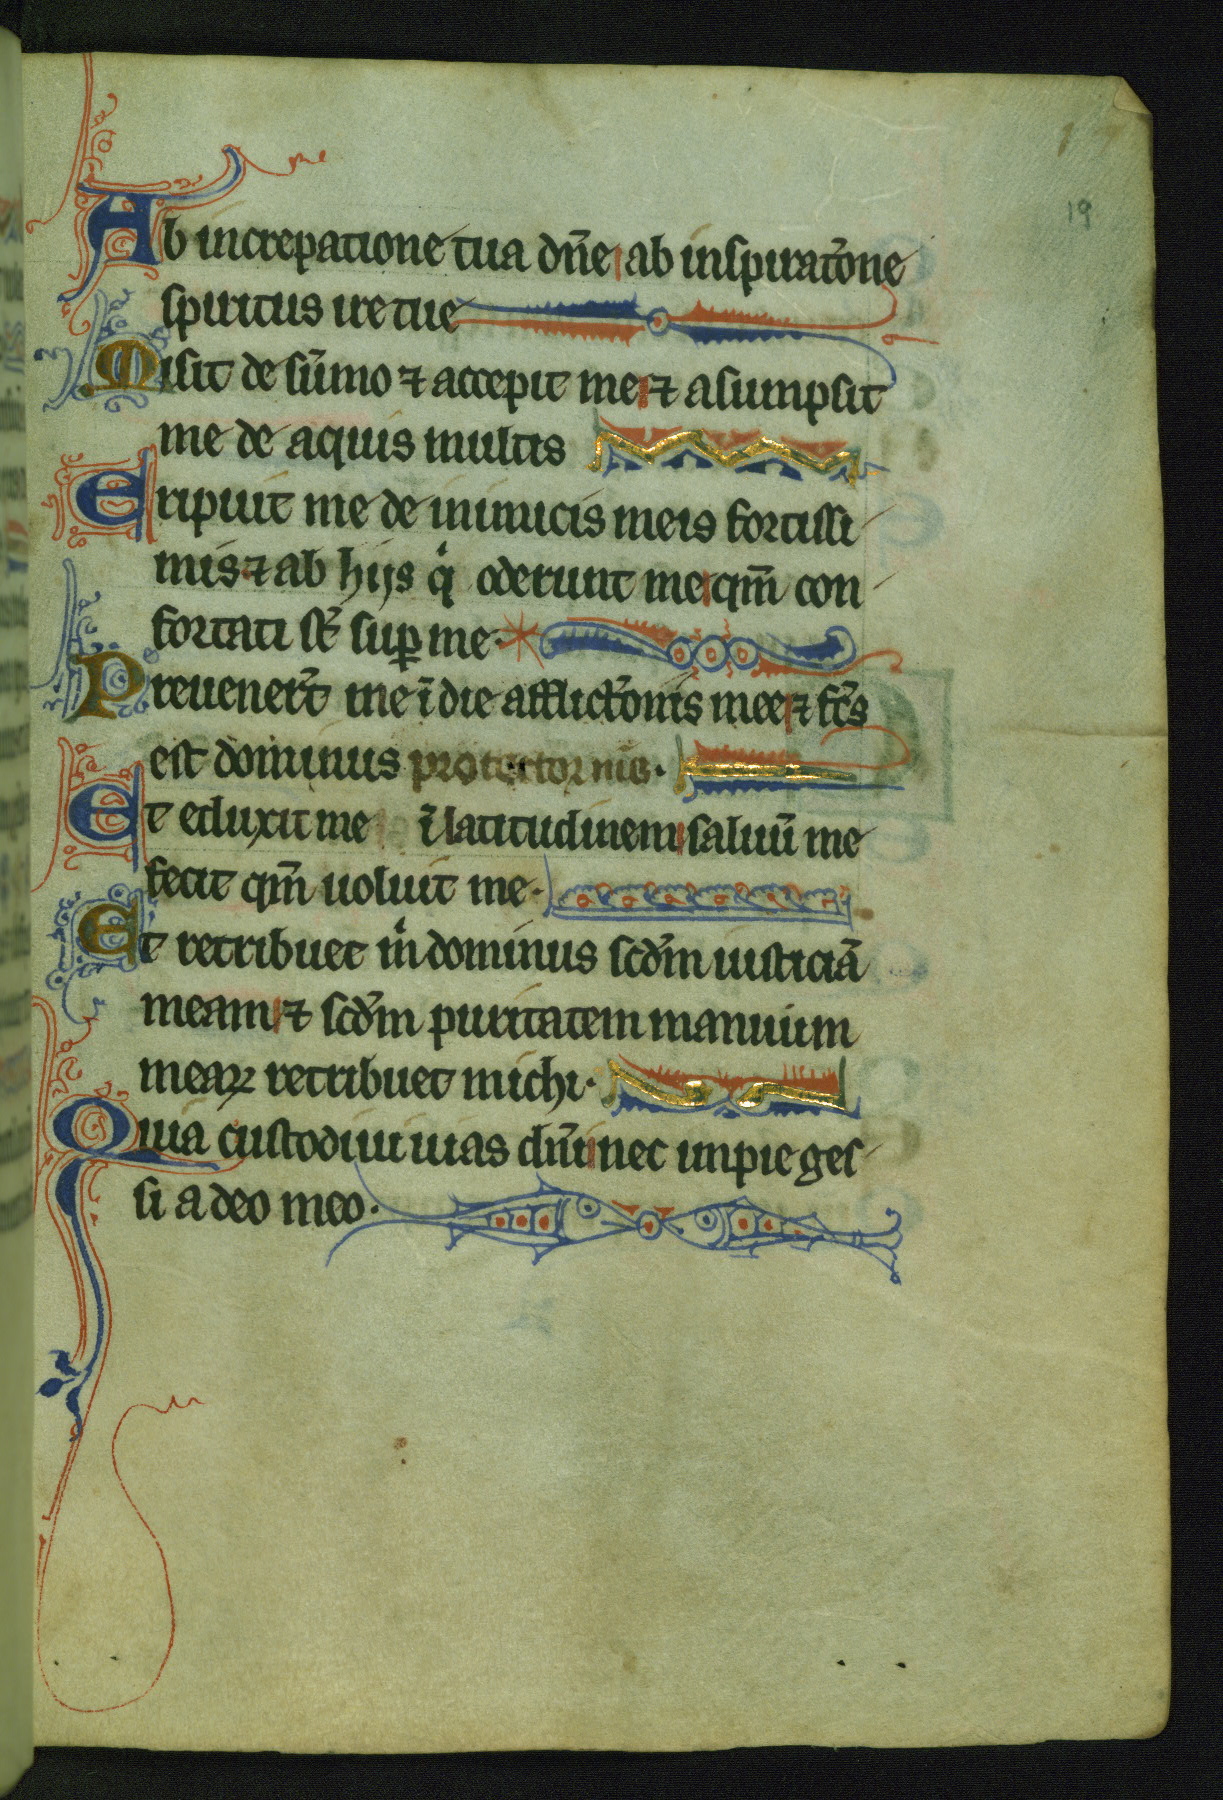 19
Ab increpatione tua dn̄e ab inspirat᷑one
spiritus ire tue
Misit de sūmo ⁊ accepit me ⁊ asumpsit
me de aquis multis
Eripiuit me de inimicis meis fortissi
mis ⁊ ab hijs qͥ oderunt me qm̄ con
fortati st̄ suꝑ me·
Preuener̄t me ī die afflict᷑onis mee ⁊ fc̄s
est dominus protector mēs·
Et eduxit me ī latitudinem saluū me
fecit qm̄ uoluit me·
Et retribuet mͥ dominus scd̄m iusticiā
meam ⁊ scd̄m puritatem manuum
meaꝝ retribuet michi·
Quia custodiui uias dn̄i nec impie ges
si a deo meo·